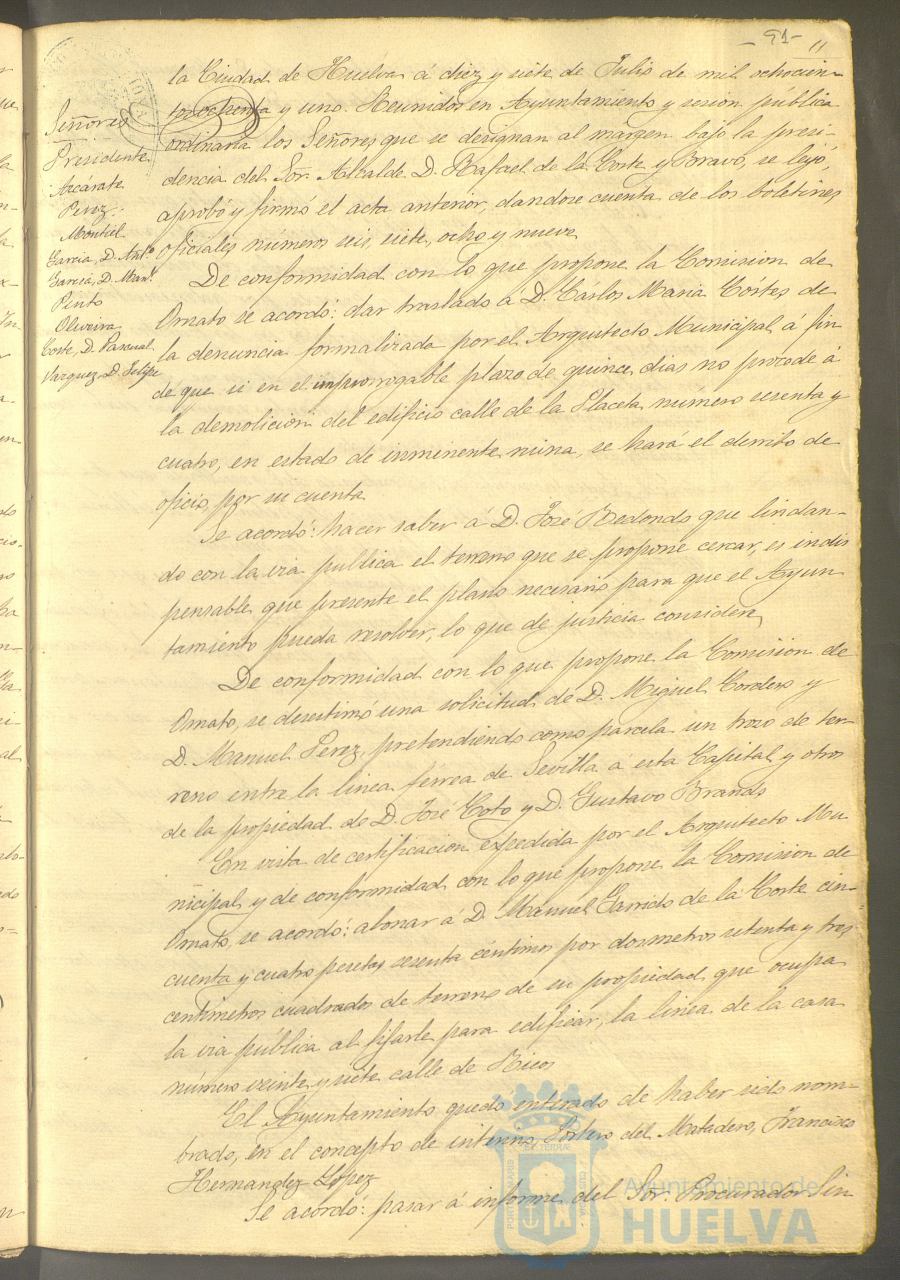 - 91 -
11
Señores
Presidente
Azcárate
Perez
Montiel
Garcia, D. Ant.º
Garcia, D. Man.l
Pinto
Oliveira
Corte, D. Pascual
Vazquez D. Felipe
la Ciudad de Huelva á diez y siete de Julio de mil ochocien-
tos ochenta y uno. Reunidos en Ayuntamiento y sesion pública
ordinaria los Señores que se designan al margen bajo la presi-
dencia del Sor. Alcalde D. Rafael de la Corte y Bravo, se leyó,
aprobó y firmó el acta anterior, dandose cuenta de los boletines
oficiales, números seis, siete, ocho y nueve
De conformidad con lo que propone la Comision de
Ornato se acordó: dar traslado á D. Cárlos Maria Córtes de
la denuncia formalizada por el Arquitecto Municipal, á fin
de que si en el improrrogable plazo de quince dias no procede á
la demolición del edificio calle de la Placeta, número sesenta y
cuatro, en estado de inminente ruina, se hará el derribo de
oficio, por su cuenta
Se acordó: hacer saber á D. José Redondo que lindan-
do con la via publica el terreno que se propone cercar, es indis
pensable que presente el plano necesario para que el Ayun
tamiento pueda resolver, lo que de justicia considere
De conformidad con lo que propone la Comision de
Ornato, se desestimó una solicitud de D. Miguel Cordero y
D. Manuel Perez, pretendiendo como parcela un trozo de ter-
reno entre la linea férrea de Sevilla á esta Capital y otro
de la propiedad de D. José Coto y D. Gustavo Brands
En vista de certificacion expedida por el Arquitecto Mu
nicipal y de conformidad con lo que propone la Comision de
Ornato, se acordó: abonar á D. Manuel Garrido de la Corte cin-
cuenta y cuatro pesetas sesenta céntimos por dos metros setenta y tres
centímetros cuadrados de terreno de su propiedad, que ocupa
la via pública al fijarle para edificar, la linea de la casa
número veinte y siete calle de Ricos
El Ayuntamiento quedó enterado de haber sido nom-
brado, en el concepto de interino, Portero del Matadero, Francisco
Hernandez Lopez
Se acordó: pasar á informe del Sor. Procurador Sin
Ayuntamiento de
HUELVA